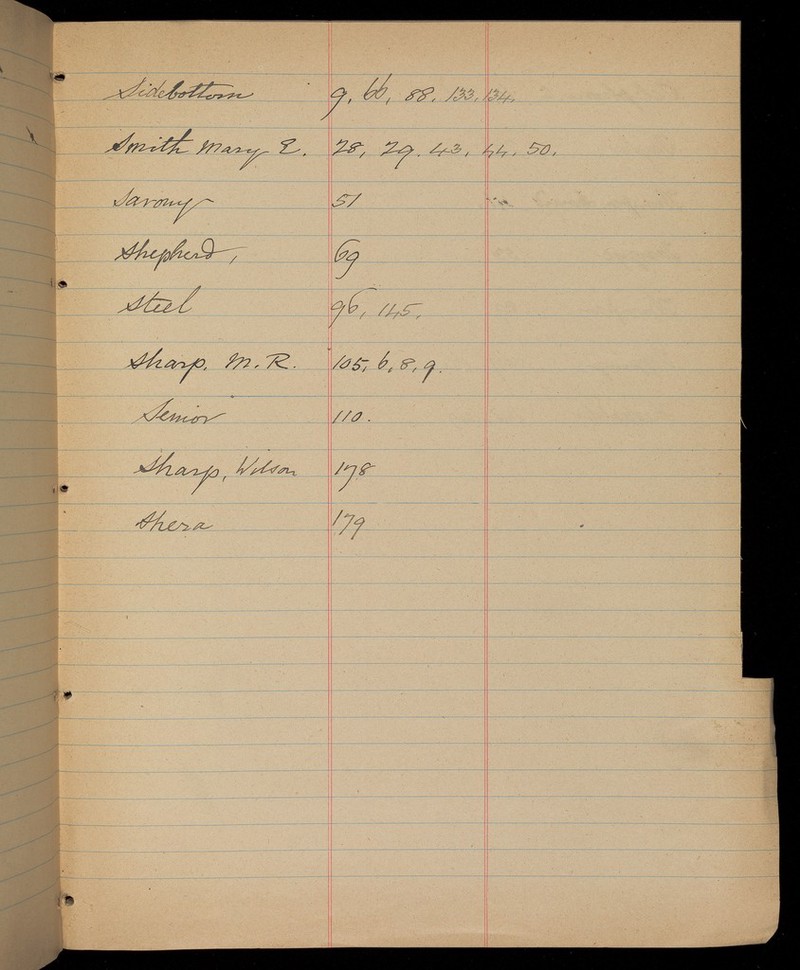 Sidebottom 9, 66, 88, 133, 134.
Smith Mary E. 28, 29. 43, 44. 50.
Savory 51
Shepherd, 69
Steel 96, 145.
Sharp. M. R. 105, 6, 8, 9.
Senior 110.
Sharp, Wilson 178
Shera 179